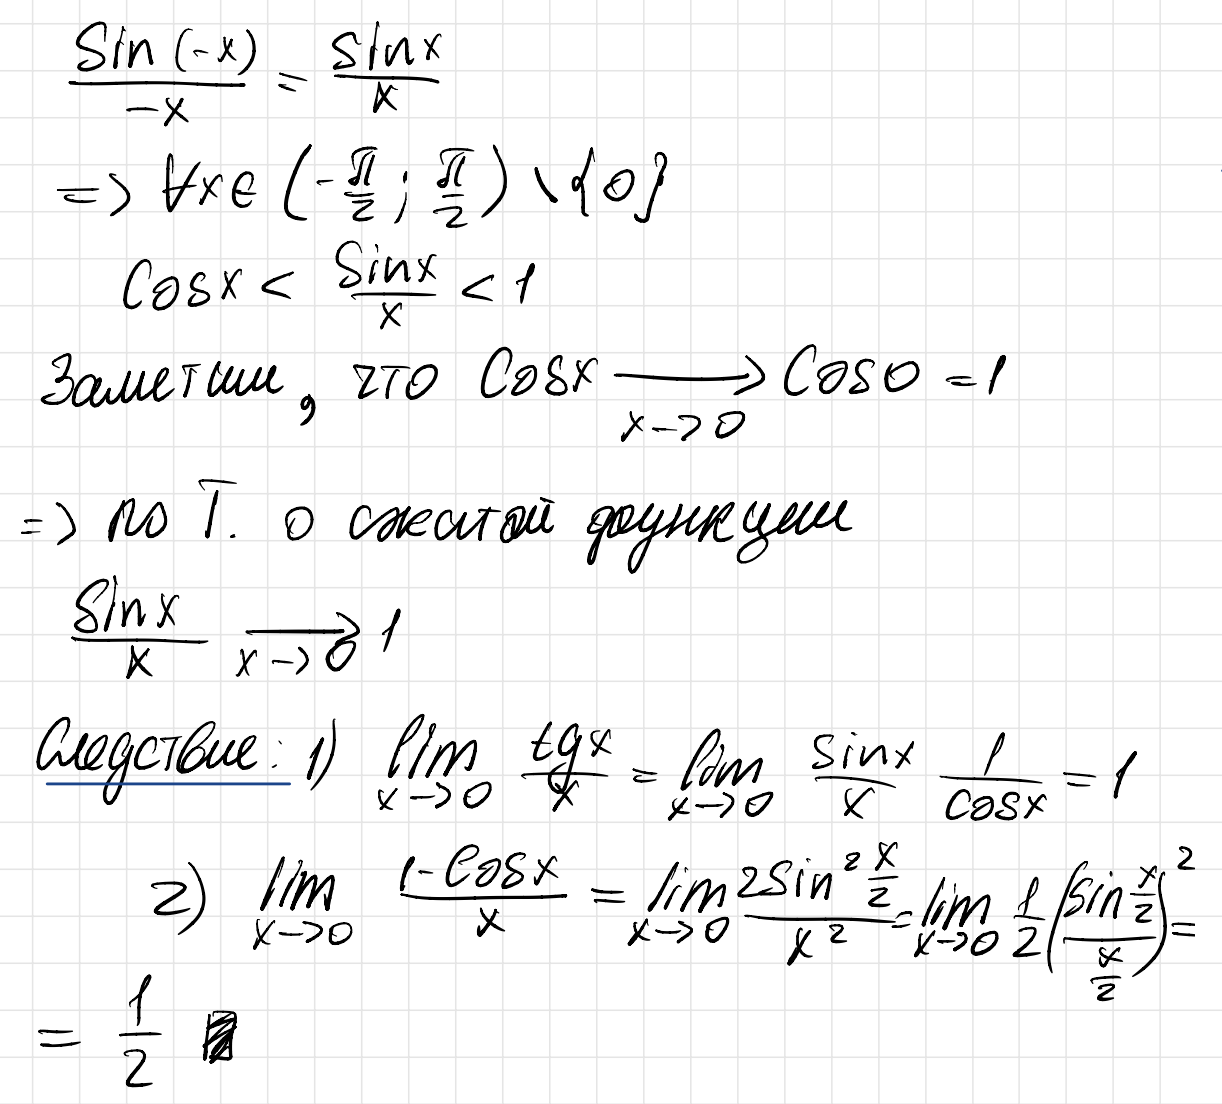 Sin(-x)/-x = sinx/x
=> ∀x∈(-π/2; π/2) \ {0}
Cosx < Sinx/x < 1
Заметим, что Cosx ⟶ Cos0 = 1
x->0
=> по Т. о сжатой функции
Sinx/x ⟶ 1
x->0
Следствие: 1) lim x->0 tgx/x = lim x->0 sinx/x 1/cosx = 1
2) lim x->0 (1-Cosx)/x = lim x->0 (2Sin²x/2)/x² = lim x->0 1/2 (sin x/2 / x/2)² =
= 1/2